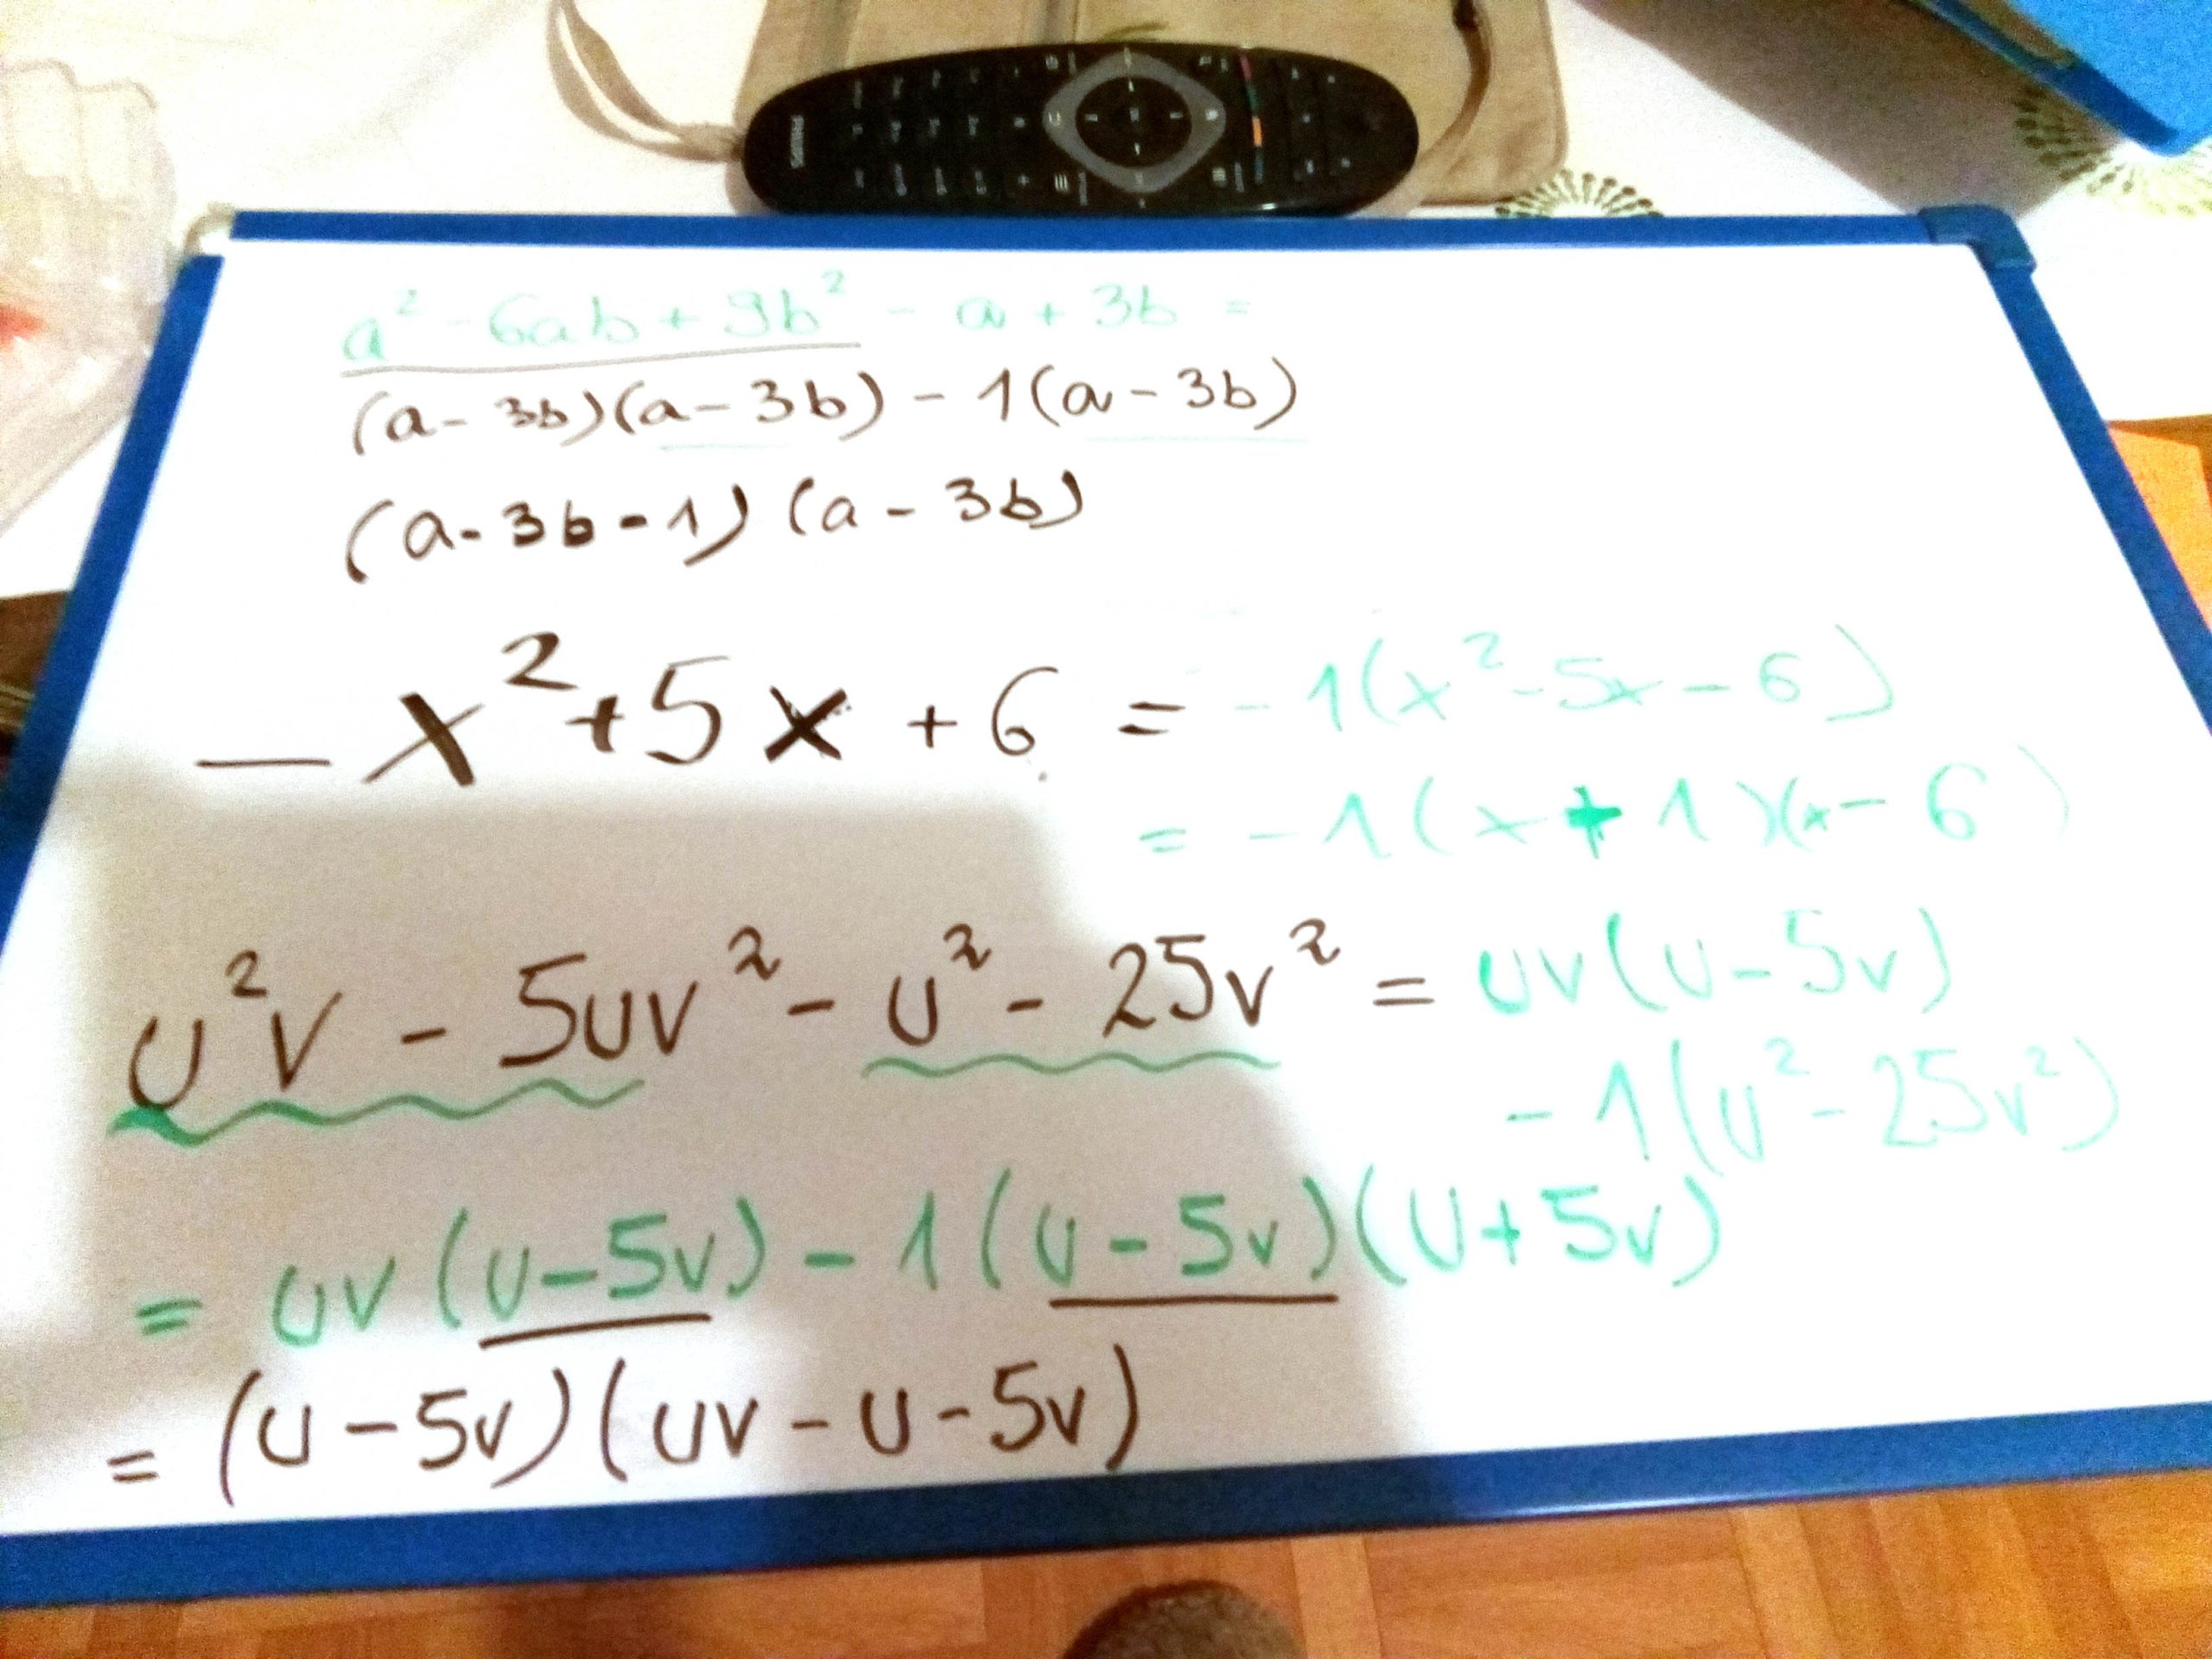 PHILIPS
a² - 6ab + 9b² - a + 3b =
(a - 3b)(a - 3b) - 1(a - 3b)
(a - 3b - 1)(a - 3b)
- x² + 5x + 6 = - 1(x² - 5x - 6)
= - 1(x + 1)(x - 6)
u²v - 5uv² - u² - 25v² = uv(u - 5v)
- 1(u² - 25v²)
= uv(u - 5v) - 1(u - 5v)(u + 5v)
= (u - 5v)(uv - u - 5v)